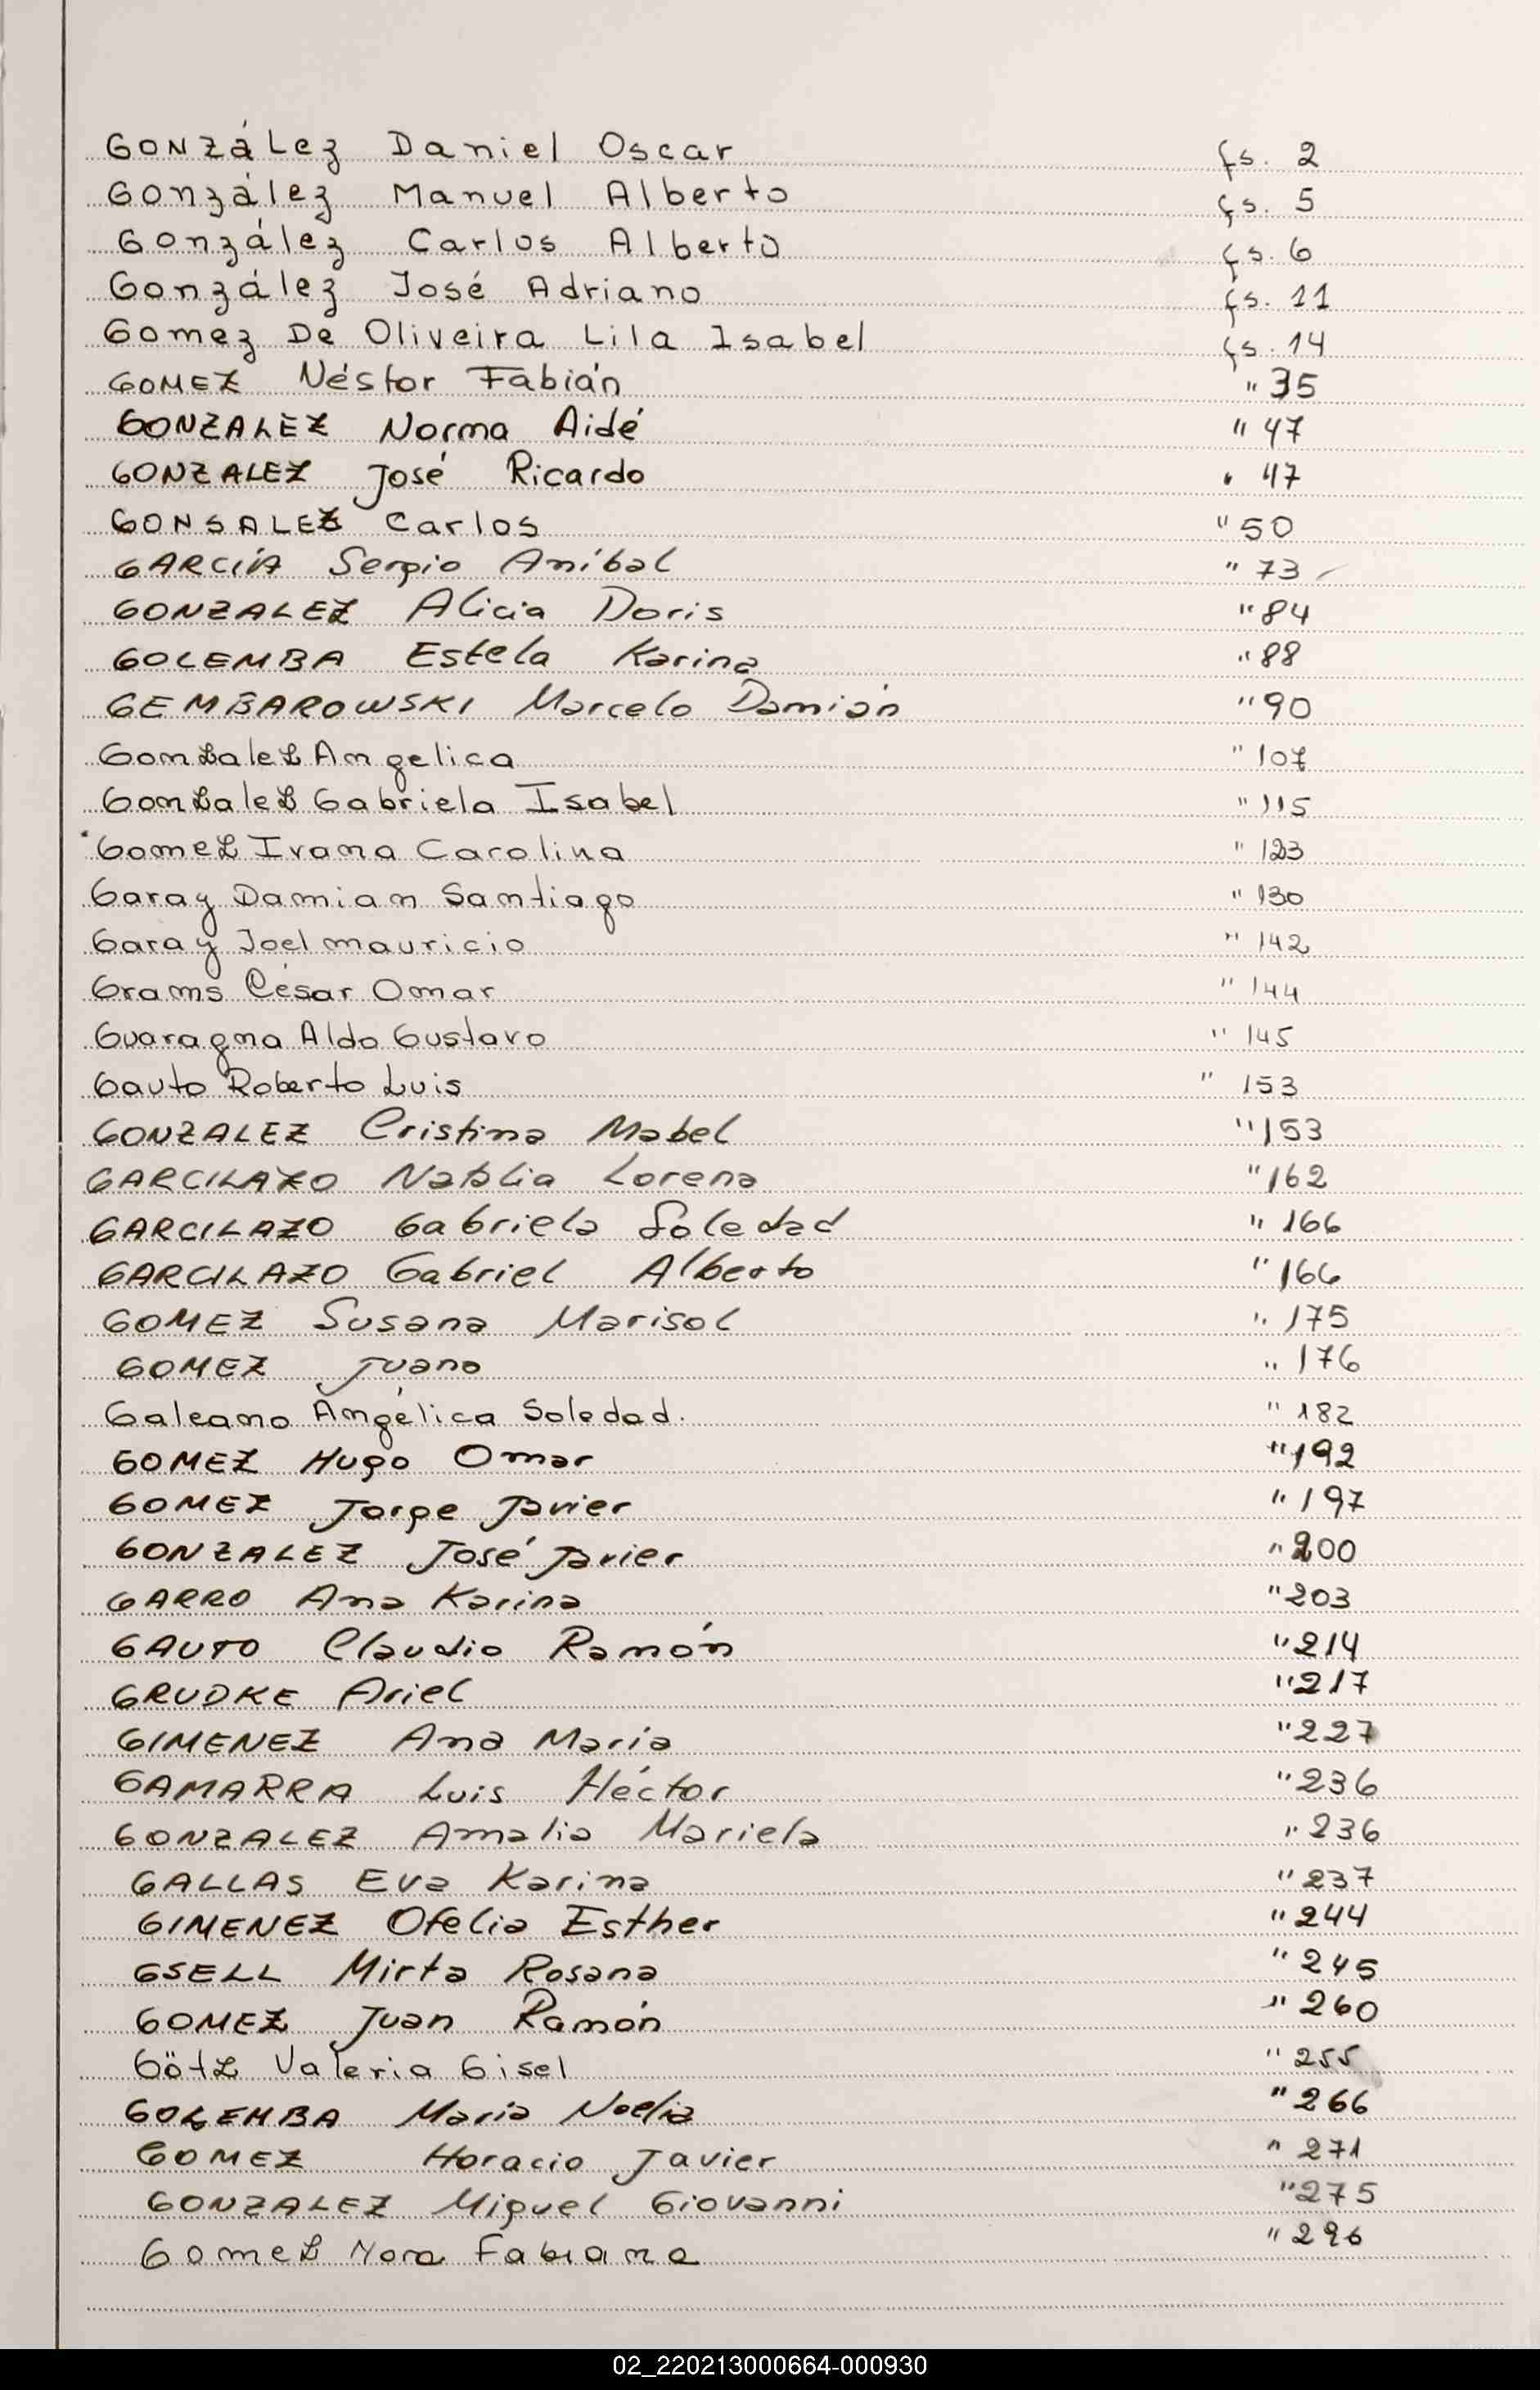 GONZáLez Daniel Oscar fs. 2
González Manuel Alberto fs. 5
González Carlos Alberto fs. 6
González José Adriano fs. 11
Gomez De Oliveira Lila Isabel fs. 14
GOMEZ Néstor Fabián " 35
GONZALEZ Norma Aidé " 47
GONZALEZ José Ricardo " 47
GONSALEZ Carlos " 50
GARCÍA Sergio Aníbal " 73
GONZALEZ Alicia Doris " 84
GOLEMBA Estela Karina " 88
GEMBAROWSKI Marcelo Damián " 90
Gonzalez Angelica " 107
Gonzalez Gabriela Isabel " 115
Gomez Ivana Carolina " 123
Garay Damian Santiago " 130
Garay Joel mauricio " 142
Grams César Omar " 144
Guaragna Aldo Gustavo " 145
Gauto Roberto Luis " 153
GONZALEZ Cristina Mabel " 153
GARCILAZO Natalia Lorena " 162
GARCILAZO Gabriela Soledad " 166
GARCILAZO Gabriel Alberto " 166
GOMEZ Susana Marisol " 175
GOMEZ Juana " 176
Galeano Angélica Soledad. " 182
GOMEZ Hugo Omar " 192
GOMEZ Jorge Javier " 197
GONZALEZ José Javier " 200
GARRO Ana Karina " 203
GAUTO Claudio Ramón " 214
GRUDKE Ariel " 217
GIMENEZ Ana María " 227
GAMARRA Luis Héctor " 236
GONZALEZ Amalia Mariela " 236
GALLAS Eva Karina " 237
GIMENEZ Ofelia Esther " 244
GSELL Mirta Rosana " 245
GOMEZ Juan Ramón " 260
Götz Valeria Gisel " 255
GOLEMBA María Noelia " 266
GOMEZ Horacio Javier " 271
GONZALEZ Miguel Giovanni " 275
Gomez Nora Fabiana " 296
02_220213000664-000930